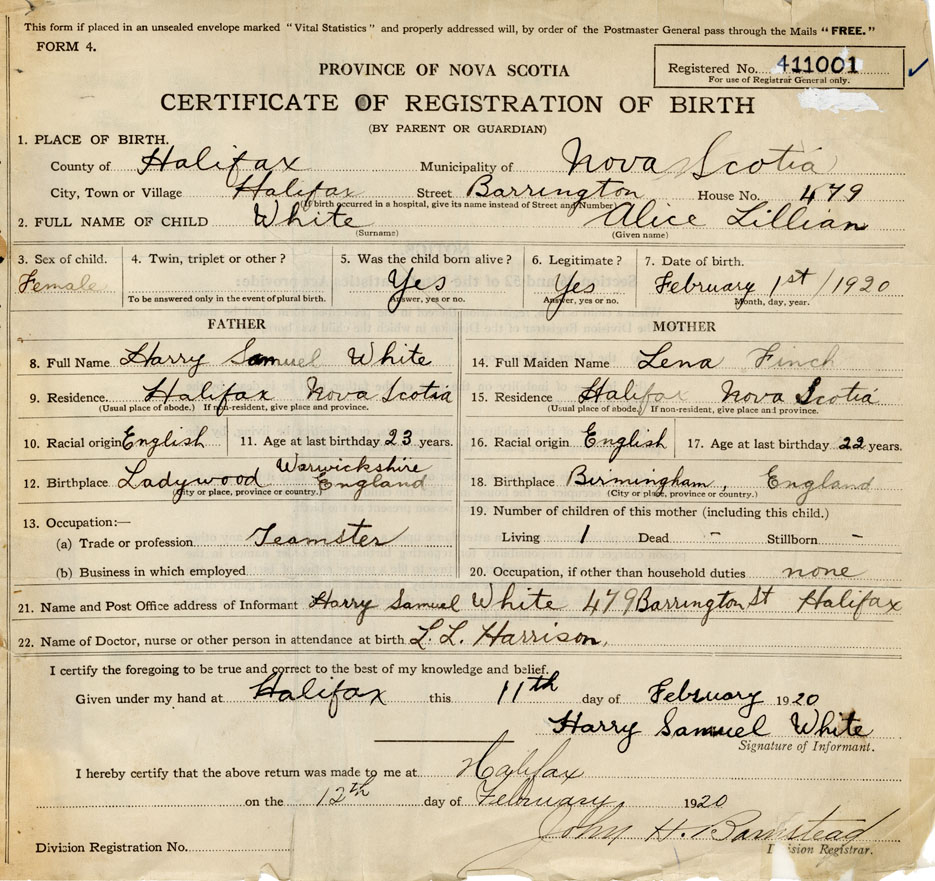 This form if placed in an unsealed envelope marked "Vital Statistics" and properly addressed will, by order of the Postmaster General pass through the Mails "FREE."
FORM 4.
Registered No. 411001
For use of Registrar General only.
PROVINCE OF NOVA SCOTIA
CERTIFICATE OF REGISTRATION OF BIRTH
(BY PARENT OR GUARDIAN)
1. PLACE OF BIRTH.
County of Halifax Municipality of Nova Scotia
City, Town or Village Halifax Street Barrington House No. 479
(If birth occurred in a hospital, give its name instead of Street and Number)
2. FULL NAME OF CHILD White Alice Lillian
(Surname) (Given name)
3. Sex of child. 4. Twin, triplet or other? 5. Was the child born alive? 6. Legitimate? 7. Date of birth.
Female Yes Yes February 1st / 1920
To be answered only in the event of plural birth. Answer, yes or no. Answer, yes or no. Month, day, year.
FATHER MOTHER
8. Full Name Harry Samuel White 14. Full Maiden Name Lena Finch
9. Residence. Halifax Nova Scotia 15. Residence Halifax Nova Scotia
(Usual place of abode.) If non-resident, give place and province. (Usual place of abode.) If non-resident, give place and province.
10. Racial origin English 11. Age at last birthday 23 years. 16. Racial origin English 17. Age at last birthday 22 years.
12. Birthplace Ladywood Warwickshire England 18. Birthplace Birmingham, England
(City or place, province or country.) (City or place, province or country.)
13. Occupation:— 19. Number of children of this mother (including this child.)
(a) Trade or profession Teamster Living 1 Dead - Stillborn -
(b) Business in which employed 20. Occupation, if other than household duties none
21. Name and Post Office address of Informant Harry Samuel White 479 Barrington St Halifax
22. Name of Doctor, nurse or other person in attendance at birth L. L. Harrison,
I certify the foregoing to be true and correct to the best of my knowledge and belief.
Given under my hand at Halifax this 11th day of February 1920
Harry Samuel White
Signature of Informant.
I hereby certify that the above return was made to me at Halifax
on the 12th day of February 1920
John H. Barnstead
Division Registration No. Division Registrar.